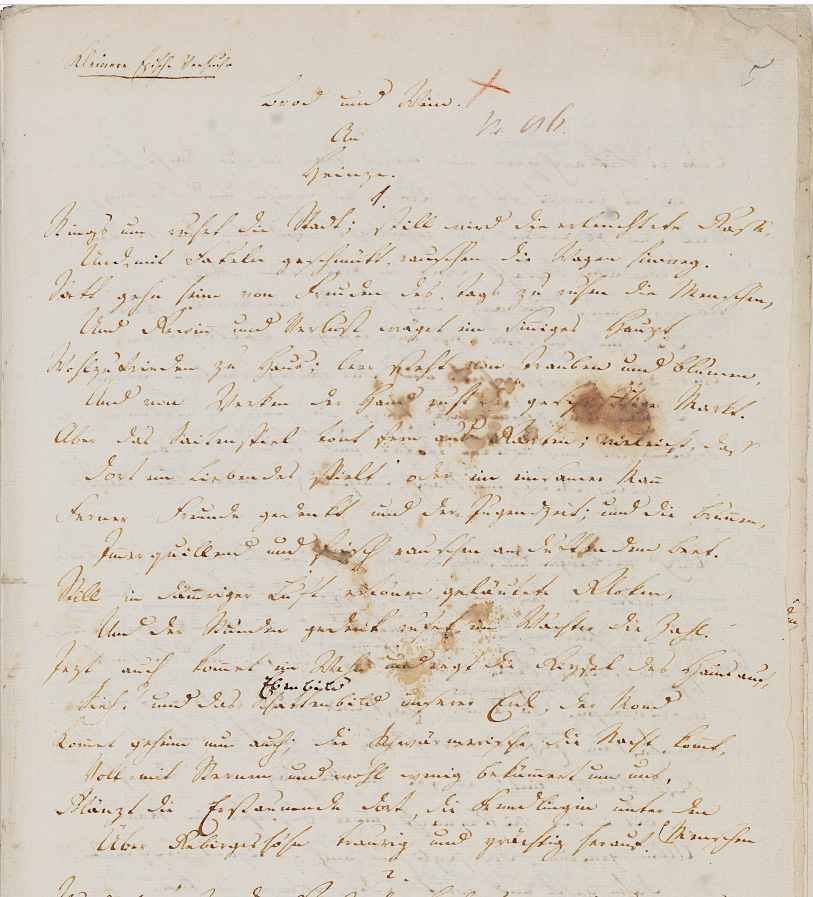 Kleinere Epische Versuche
5
Brod und Wein.
An
Heinze.
1.
Rings um ruhet die Stadt; still wird die erleuchtete Gasse,
Und, mit Fakeln geschmükt, rauschen die Wagen hinweg.
Satt gehn heim von Freuden des Tags zu ruhen die Menschen,
Und Gewinn und Verlust wäget ein sinniges Haupt
Wohlzufrieden zu Haus; leer steht von Trauben und Blumen,
Und von Werken der Hand ruht der geschäfftige Markt.
Aber das Saitenspiel tönt fern aus Gärten; vieleicht, daß
Dort ein Liebendes spielt oder ein einsamer Mann
Ferner Freunde gedenkt und der Jugendzeit; und die Brunnen,
Immerquillend und frisch rauschen an duftendem Beet.
Still in dämmriger Luft ertönen geläutete Gloken,
Und der Stunden gedenk rufet ein Wächter die Zahl.
Jezt auch kommet ein Wehn und regt die Gipfel des Hains auf,
Ebenbild
Sieh! und das Schattenbild unserer Erde, der Mond
Kommet geheim nun auch; die Schwärmerische, die Nacht kommt,
Voll mit Sternen und wohl wenig bekümmert um uns,
Glänzt die Erstaunende dort, die Fremdlingin unter den
Menschen
Über Gebirgeshöhn traurig und prächtig herauf.
2.